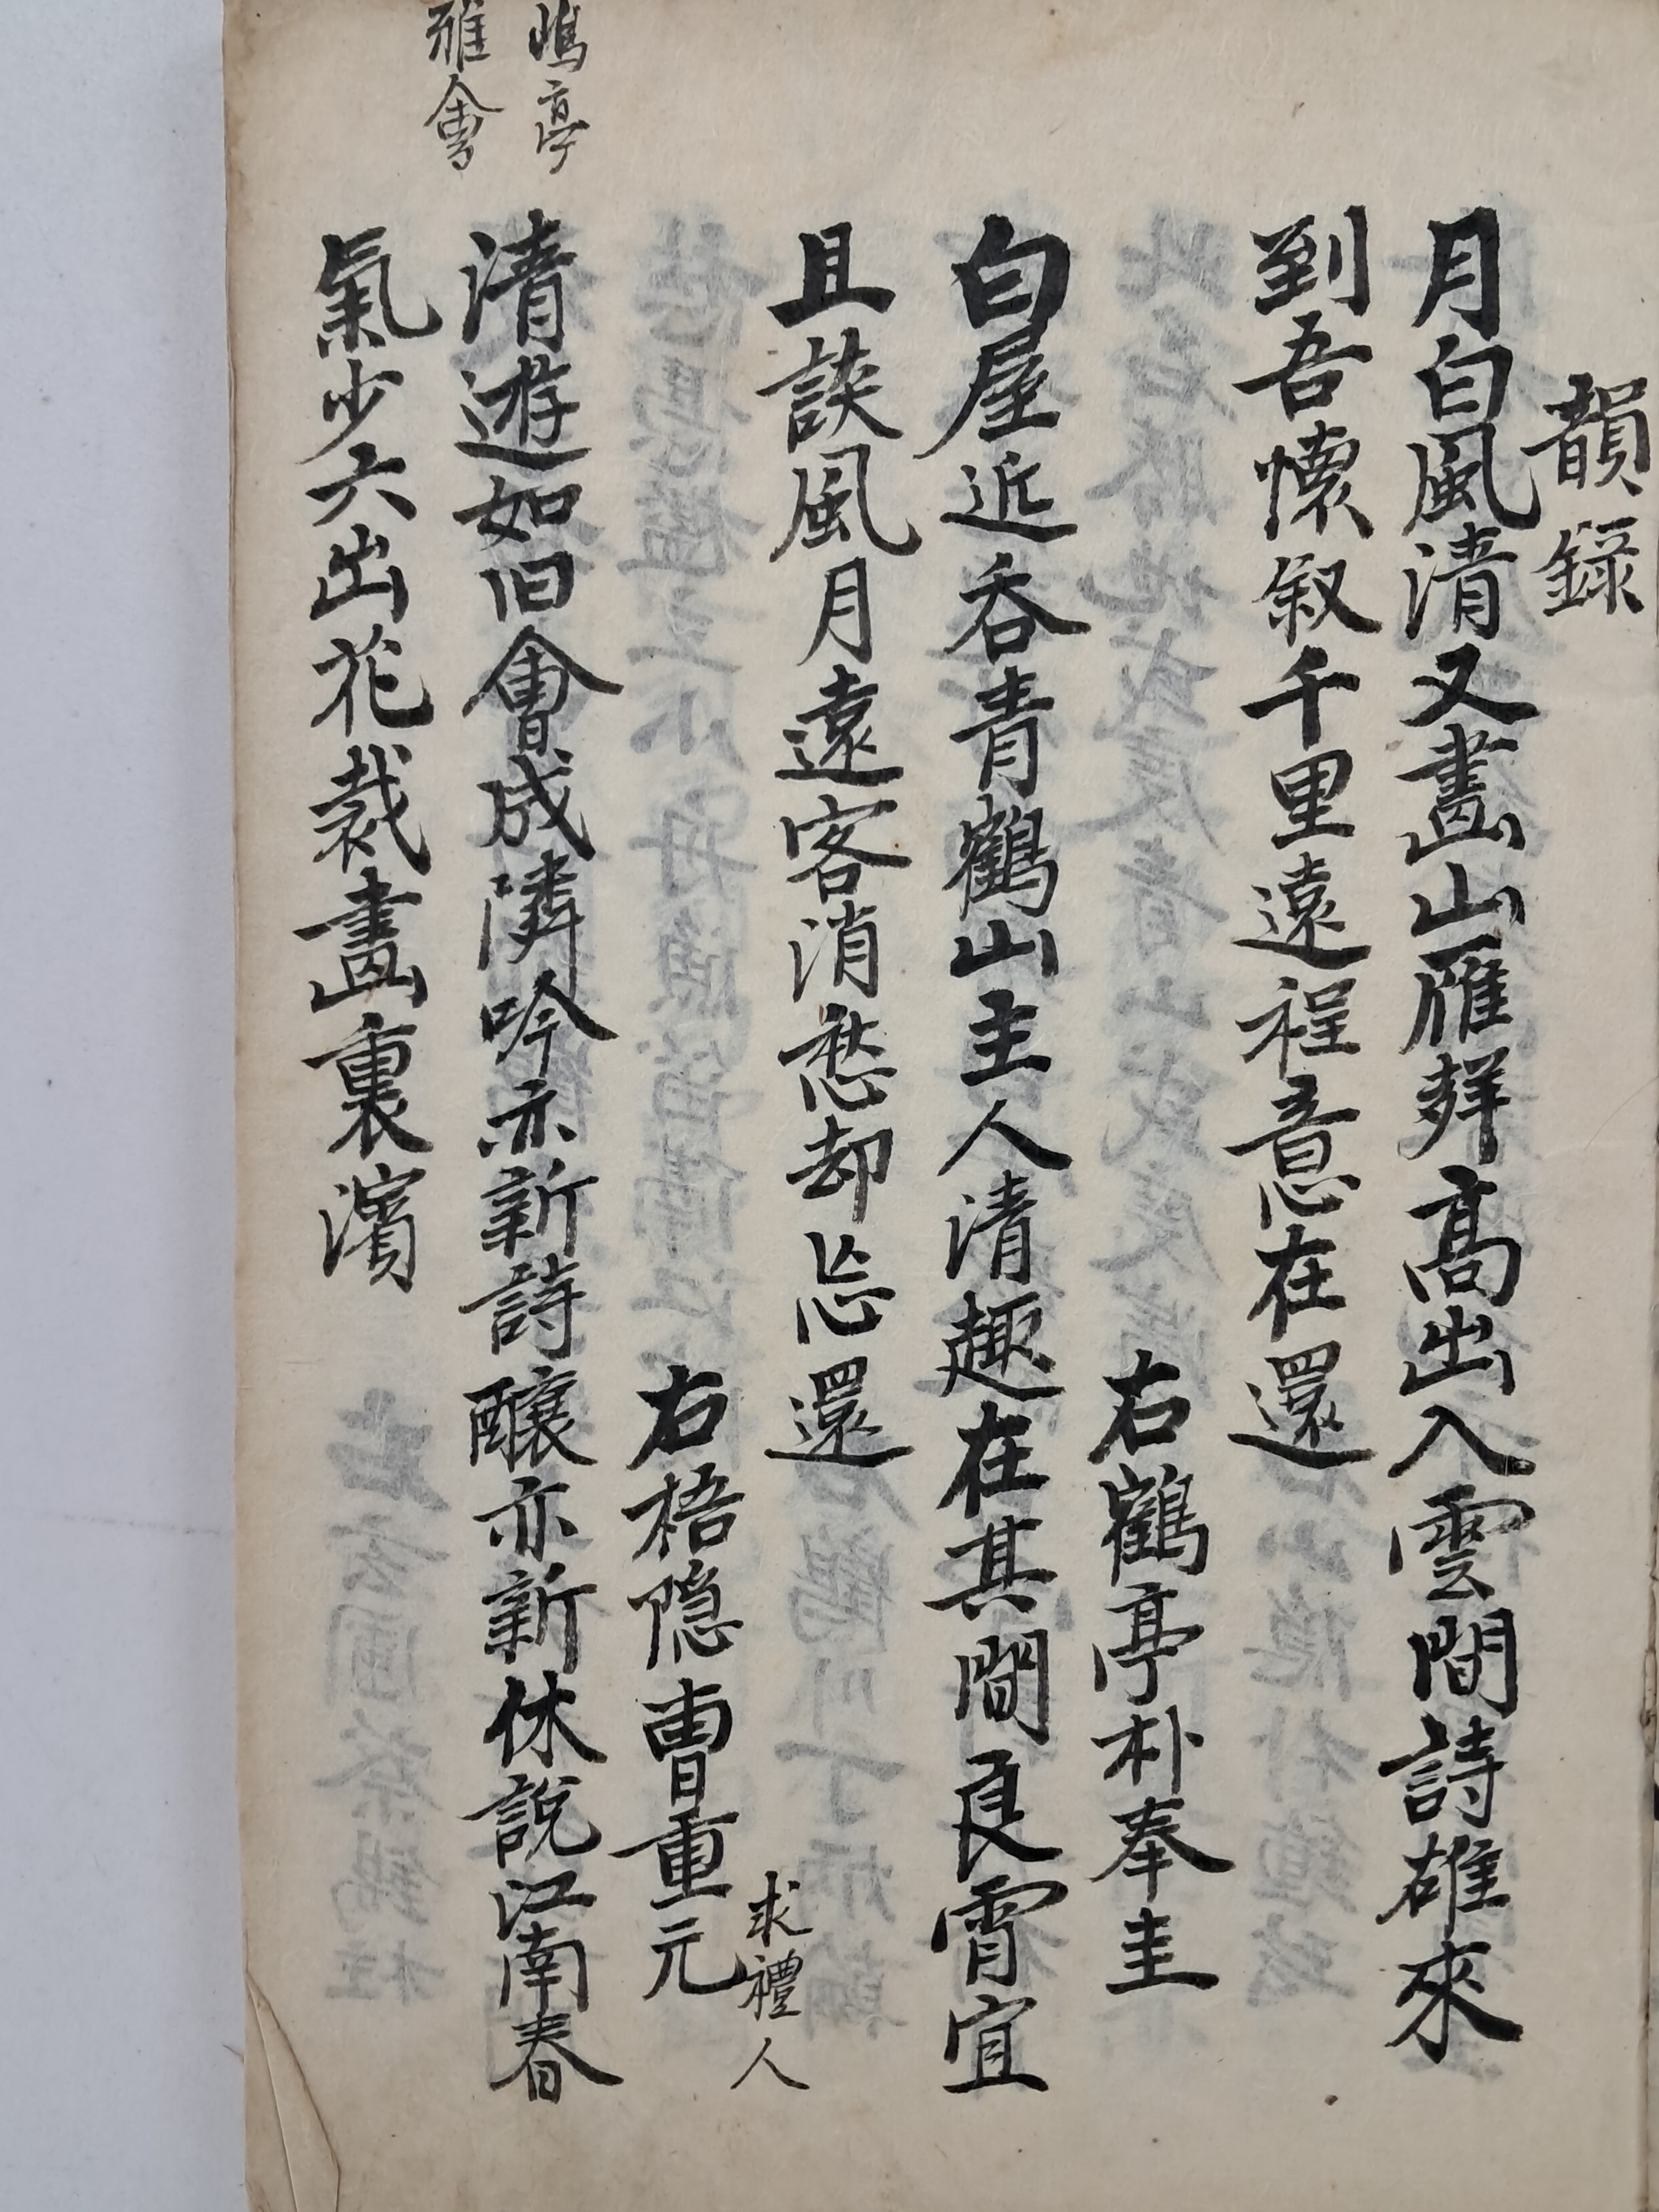 韻錄
月白風清又畵山雁群高出入雲間詩雄來
到吾懷叙千里遠程意在還
右鶴亭朴奉圭
白屋近呑青鶴山主人清趣在其間良霄宜
且談風月遠客消愁却忘還
求禮人
右梧隐曺重元
嶋亭
雅會
清遊如旧會成隣吟亦新詩釀亦新休說江南春
氣少六出花裁畵裏濱